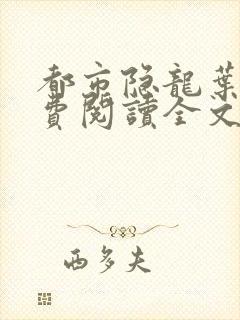 都市隐龍葉
費閱讀全文
西多夫